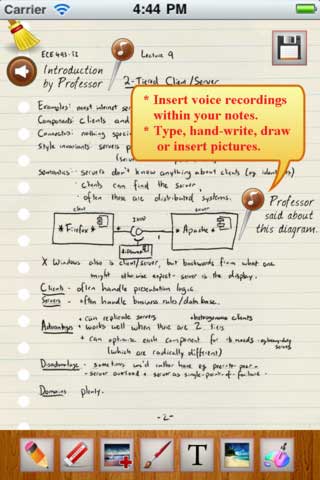 Carrier 4:44 PM
ECE 493-T2 Lecture 9
Introduction
by Professor
2-Tiered Client/Server
Examples: most internet ser
Components: clients and
Connectors: nothing speci
Style invariants: servers p
(server
* Insert voice recordings
within your notes.
* Type, hand-write, draw
or insert pictures.
Semantics: servers don't know anything about clients (eg identities)
· clients can find the server,
· often these are distributed systems.
Professor
said about
this diagram.
client server
* Firefox * * Apache *
X Windows also is client/server, but backwards from what one
might otherwise expect - server is the display.
Clients - often handle presentation logic.
Servers - often handle business rules/database.
+ can replicate servers heterogenous clients
Advantages + works well when there are 2 tiers
+ can optimize each component for needs
(which are radically different) servers
Disadvantage - sometimes we'd rather have eg peer-to-peer
- server overload + server as single-point-of-failure.
Domains plenty.
-2-
T